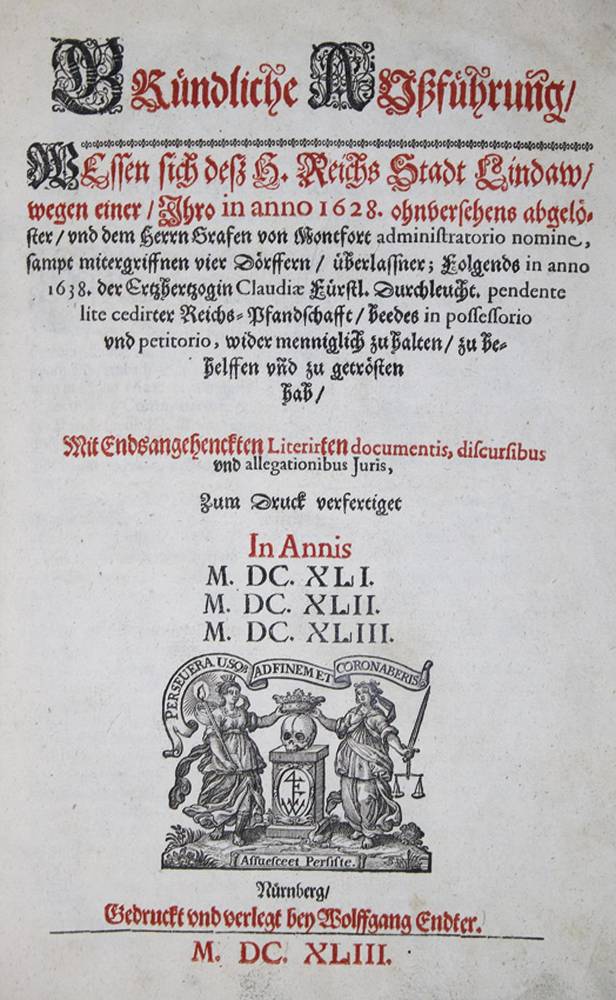 GRündliche Außführung/
WEssen sich deß H. Reichs Stadt Lindaw/
wegen einer / Ihro in anno 1628. ohnversehens abgelö-
ster / vnd dem Herrn Grafen von Montfort administratorio nomine,
sampt mitergriffnen vier Dörffern / überlassner; Folgends in anno
1638. der Ertzhertzogin Claudiæ Fürstl. Durchleucht. pendente
lite cedirter Reichs-Pfandschafft / beedes in possessorio
vnd petitorio, wider menniglich zu halten / zu be-
helffen vñd zu getrösten
hab /
Mit Endsangehenckten Literirten documentis, discursibus
vnd allegationibus Juris,
Zum Druck verfertiget
In Annis
M. DC. XLI.
M. DC. XLII.
M. DC. XLIII.
PERSEUERA USQ3 AD FINEM ET CORONABERIS
Assuesce et Persiste.
Nürnberg/
Gedruckt vnd verlegt bey Wolffgang Endter.
M. DC. XLIII.